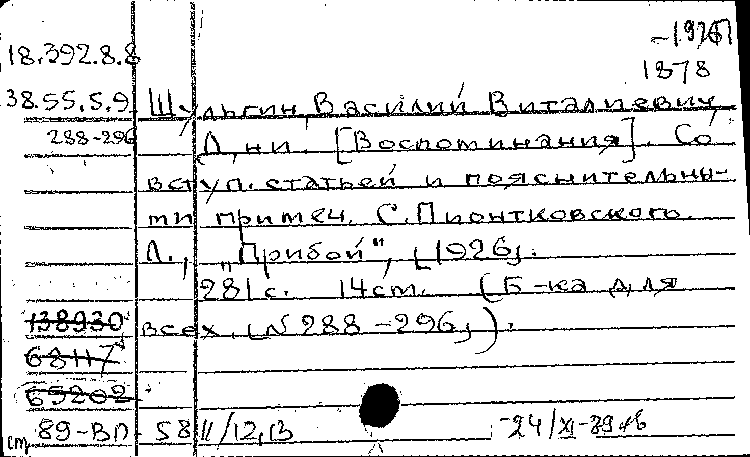 18.392.8.8
1878
38.55.5.9 Шульгин, Василий Виталиевич
288-296 Дни. [Воспоминания]. Со
вступ. статьей и пояснительны-
ми примеч. С. Пионтковского.
Л., „Прибой", [1926].
281 с. 14 см. (Б-ка для
138930 всех. [№ 288-296]).
68117
65202
ст 89-ВП-5811/12,13